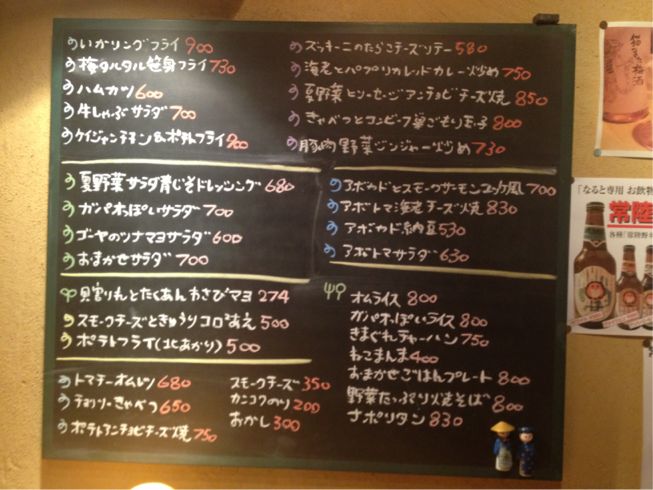 いかリングフライ 900
梅タルタル笹身フライ 730
ハムカツ 600
牛しゃぶサラダ 700
ケイジャンチキン&ポテトフライ 900
ズッキーニのたらこチーズソテー 580
海老とパプリカレッドカレー炒め 750
夏野菜とソーセージアンチョビチーズ焼 850
きゃべつとコンビーフ巣ごもり玉子 800
豚肉野菜ジンジャー炒め 730
夏野菜サラダ青じそドレッシング 680
ガパオっぽいサラダ 700
ゴーヤのツナマヨサラダ 600
おまかせサラダ 700
アボカドとスモークサーモンユッケ風 700
アボトマ海老チーズ焼 830
アボカド納豆 530
アボトマサラダ 630
貝割りれとたくあんわさびマヨ 274
スモークチーズときゅうりコロコロあえ 500
ポテトフライ(北あかり) 500
トマチーオムレツ 680
チョリソーきゃべつ 650
ポテトアンチョビチーズ焼 750
スモークチーズ 350
カンコクのり 200
おかし 300
オムライス 800
ガパオっぽいライス 800
きまぐれチャーハン 750
ねこまんま 400
おまかせごはんプレート 800
野菜たっぷり焼そば 800
ナポリタン 830
梅酒
「なると専用 お飲物
常陸